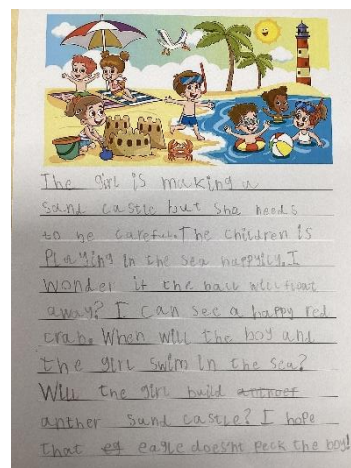 The girl is making a
sand castle but sha needs
to be careful. The children is
playing in the sea happyily. I
wonder if the ball will float
away? I can see a happy red
crab. When will the boy and
the girl swim in the sea?
Will the girl build
anther sand castle? I hope
that eagle doesn't peck the boy!